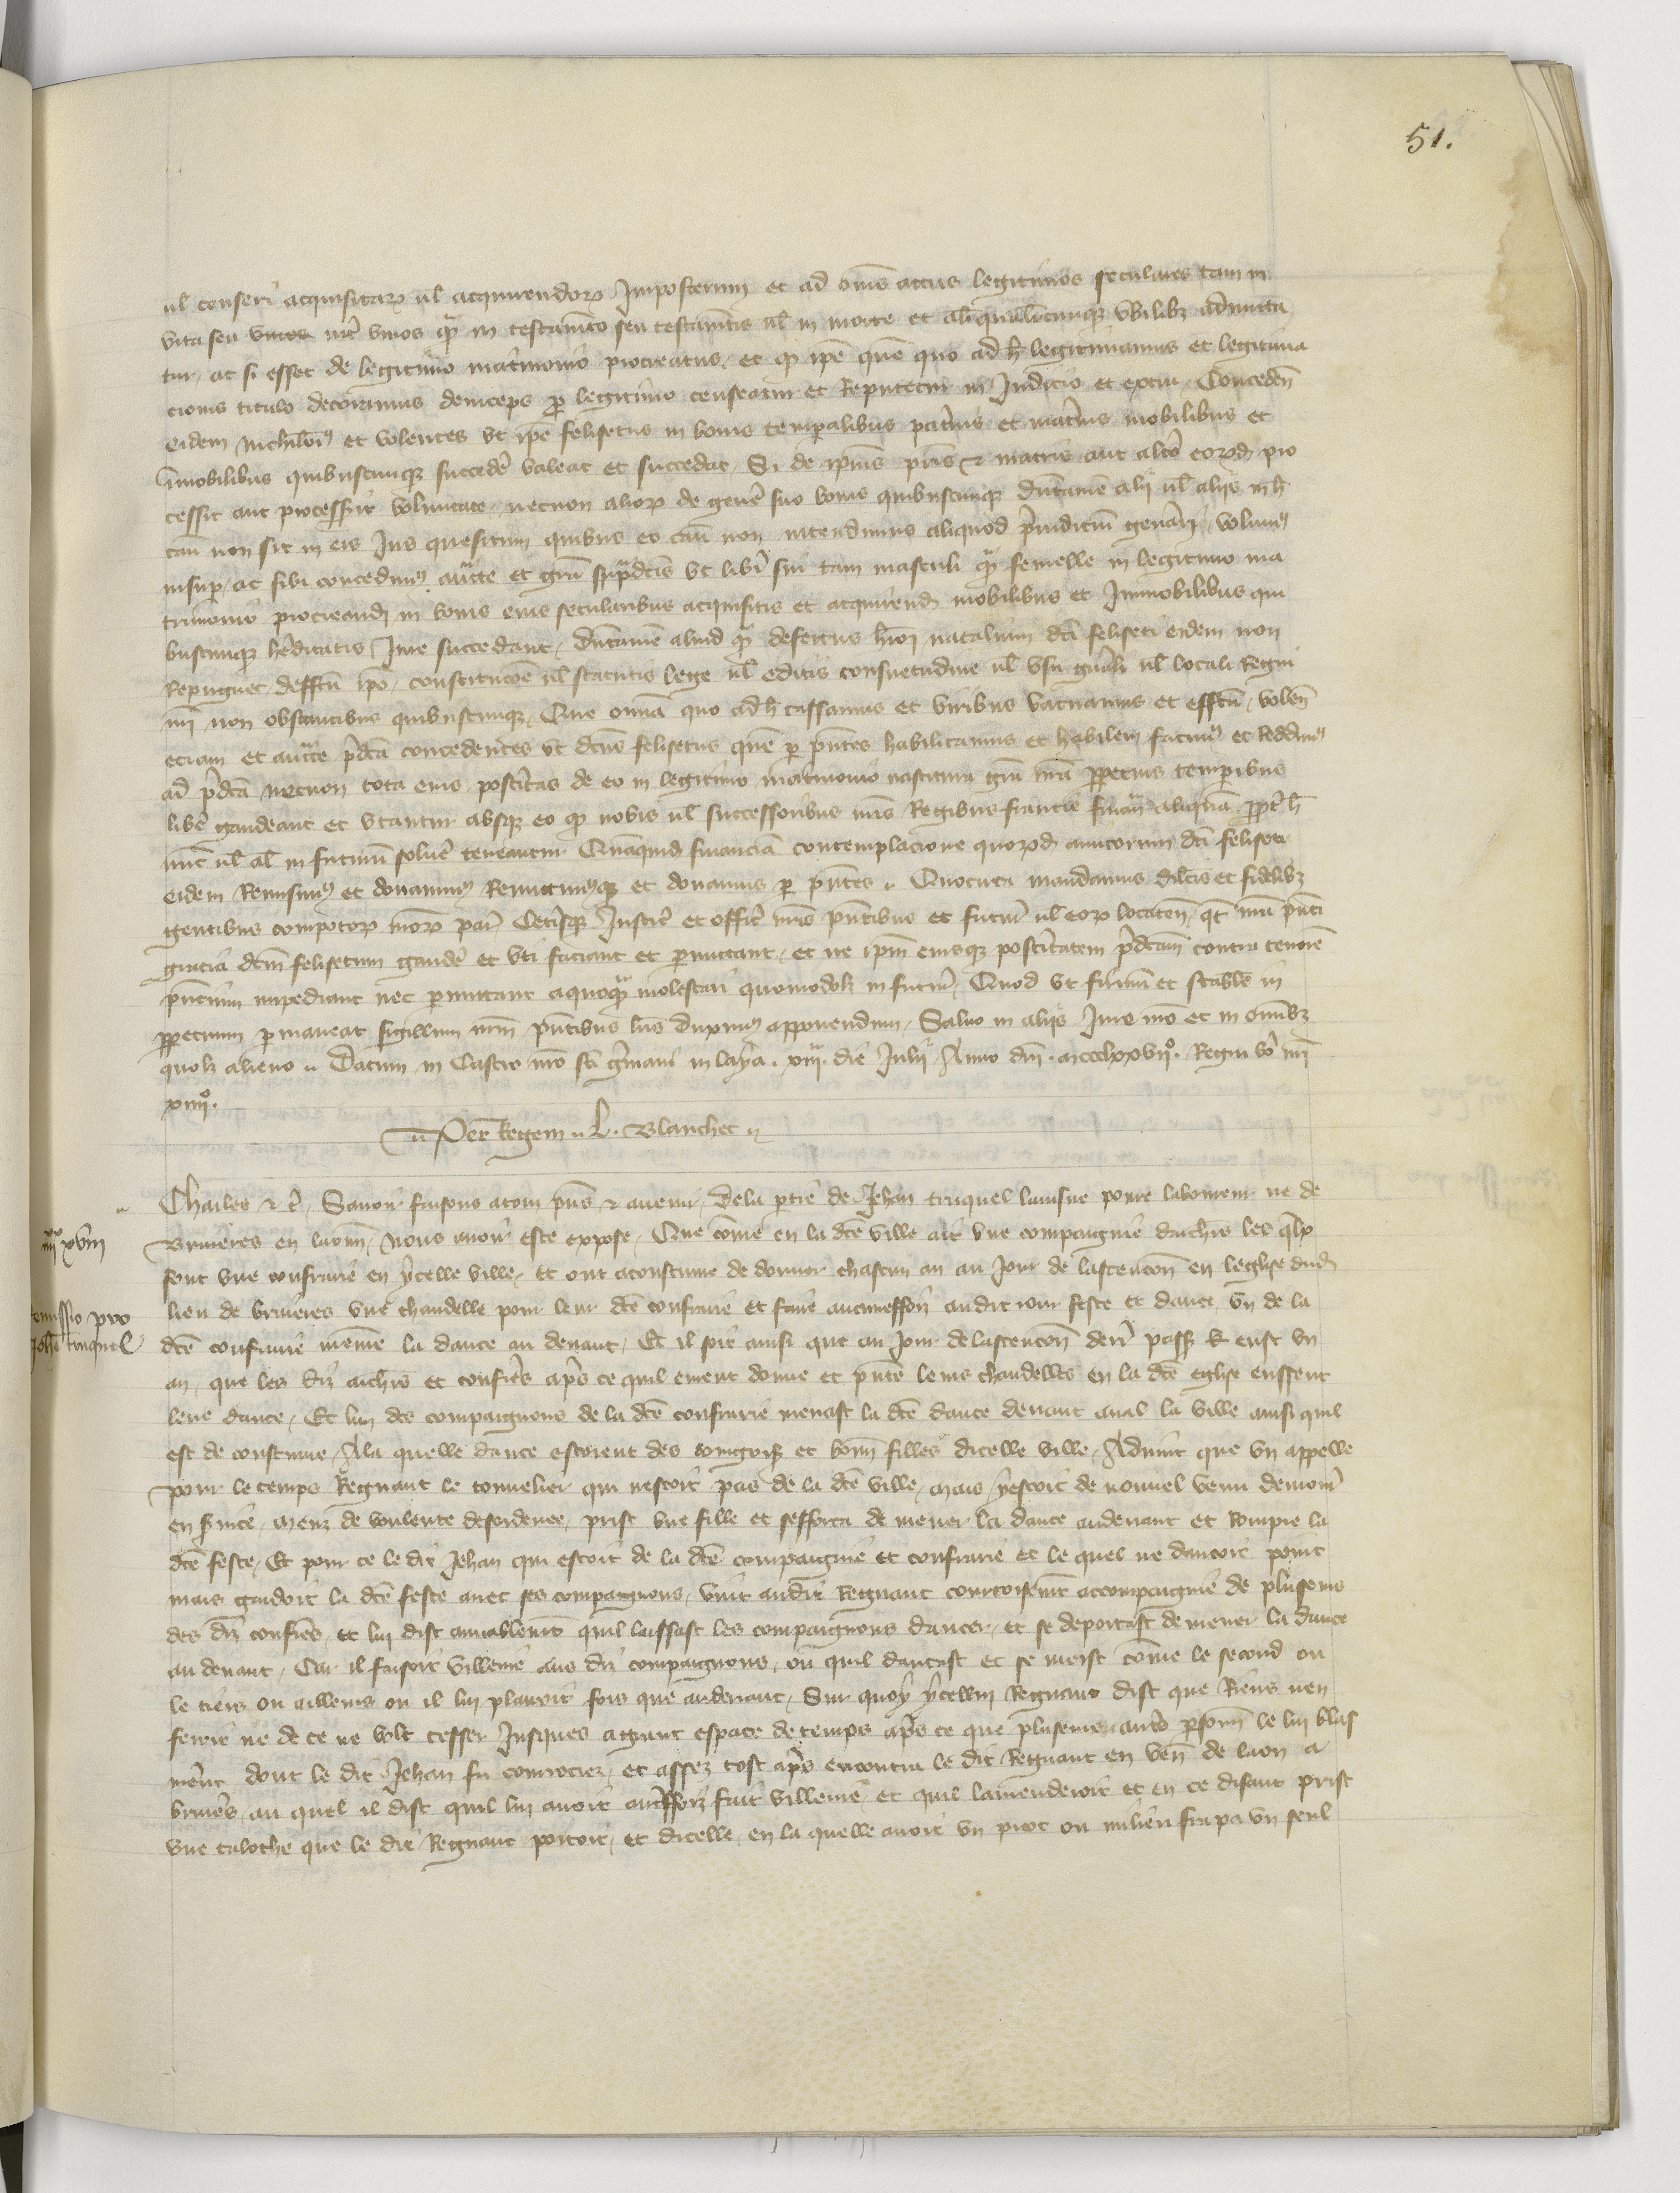 51.
ul conseri acquisitarꝝ ul acquirendorꝝ Imposterum et ad om̃s actus legitimos seculares tam in
vita seu inter vivos qͣ in testam̃to seu testam̃tis al in morte et aliqualitcunqꝫ vbilibꝫ admitta
tur, ac si esset de legitimo mat̃monio procreatus, et qꝫ ip̃e quẽ quo ad h̃ legitimamus et legitima
cionis titulo decoramus deinceps ꝓ legitimo censeatur et Reputetur in Judicio et extra, Conceden̄
eidem nichilõiꝰ et volentes vt ip̃e felisetus in bonis temꝑalibus pat̃nis et mat̃nis mobilibus et
immobilibus quibuscunqꝫ succedẽ valeat et succedat, Si de ip̃ius pr̃is ⁊ matris aut alt̃o eorꝝd pro
cessit aut processit voluntate, necnon aliorꝝ de gen̄e suo bonis quibuscunqꝫ dũtamẽ alij ul̃ alijs in h̃
cau non sit in eis Jus quesitum quibus eo cau non intendimus aliquod p̃iudiciũ gen̄ari, volumꝰ
insuꝑ, ac sibi concedimꝰ auct̃te et gr̃a sup̃dc̃is vt lib̃i sui tam masculi qͣ femelle in legitimo ma
trimonio procreand in bonis eius secularibus acquisitis et acquirend mobilibus et Immobilibus qui
buscunqꝫ he̾ditatis Jure succedant, dũtamẽ aliud qͣ defectus h̃ioi natalium dc̃i feliseti eidem non
Repugnet, deffc̃u ip̃o, constitucõe ul̃ statutis lege ul̃ editis consuetudine ul̃ vsu gn̄ali ul̃ locali Regni
nr̃i non obstantibus quibuscunqꝫ, Que omia quo ad h̃ cassamus et viribus vacuamus et effc̃u, volen̄
eciam et auct̃te p̃dc̃a concedentes vt dc̃us felisetus quẽ ꝑ pñtes habilitamus et habilem facimꝰ et reddimꝰ
ad p̃dc̃a necnon tota eius post̾itas de eo in legitimo mat̃monio nascitura gr̃a nr̃a ꝑpetuis temꝑibus
lib̃e gaudeant et vtantur absqꝫ eo qꝫ nobis ul̃ successoribus nr̃is Regibus francie finan̄ aliquã ꝓpt̃ h̃
nũc ul̃ al in futurũ solu̾e teneantur Quãquid financiã contemplacione quorꝝd amicorum dc̃i feliseti
eidem Remisimꝰ et donauimꝰ Remittimꝰqꝫ et donamus ꝑ pñtes ⹂ Quocirca mandamus dilc̃is et fidelibꝫ
gentibus compotorꝝ nr̃orꝝ par̃ Cet̾isqꝫ Justic̃ et offic̃ nr̃is pñtibus et futur̃ ul̃ eorꝝ locaten̄, qt̃ nr̃a pñti
gracia dc̃m felisetum gaude̾ et vti faciant et ꝑmittant, et ne ip̃m eiusqꝫ post̾itatem p̃dc̃am contra tenorẽ
pñtium impediant nec ꝑmittant a quoqͣ molestari quomodolꝫ in futur̃, Quod vt firmũ et stabile in
ꝑpetuum ꝑmaneat sigillum nr̃m pñtibus lr̃is duximꝰ apponendum, Saluo in alijs Jure nr̃o et in om̃ibꝫ
quolꝫ alieno ⹂ Datum in Castro nr̃o sc̃i g̃mani in laya . xiiijͣ . die Julij Anno dñi . mccclxxvijº. Regni vo̾ nr̃i
xiiijº.
⹂ Per Regem ⹂ L. Blanchet ⹂
iiijˣˣ xviij
Remissio pro
Joh̃e truquel
Charles ⁊ c̃, Sauoir faisons a tous pñs ⁊ auenir, De la ꝑtie de Jehan truquel lainsne poure laboureur ne de
Bruieres en laonn̄, Nous auoir este expose, Que cõme en la dc̃e ville ait vne compaignie darchr̃s les qlx
sont vne confrarie en ycelle ville, et ont acoustume de donner chascun an au Jour de lascencõn en leglise dud
lieu de bruieres vne chandelle pour leur dc̃e confrarie et faire aucuneffoiz audit iour feste et dance, vn de la
dc̃e confrarie meine la dance au deuant, Et il soit ainsi que au Jour de lascencõn dern̄ pass̃ ot eust vn
an, que les dĩz archr̃s et confr̃es ap̃s ce quil eurent donne et pñte leurs chandelles en la dc̃e eglise eussent
leue dance, Et lun des compaignons de la dc̃e confrarie menast la dc̃e dance deuant aual la ville ainsi quil
est de coustume, A la quelle dance estoient des bourgoiz et bonn̄ filles dicelle ville, Aduint que vn appelle
pour le temps Regnaut le tonnelier qui nestoit pas de la dc̃e ville, mais y estoit de nouuel venu demour̃
en s̃uice, meuz de voulente desordenee, prist vne fille et sefforca de mener la dance audeuant et Rompre la
dc̃e feste, Et pour ce le dit Jehan qui estoit de la dc̃e compaignie et confrarie et le quel ne dancoit point
mais gardoit la dc̃e feste auec ses compaignons, vint audit Regnaut courtoisem̃t accompaignie de pluseurs
des dĩz confr̃es, et lui dist amiablem̃t quil laissast les compaignons dancer, et se deportast de mener la dance
au deuant, Car il faisoit villenie aus dĩz compaignons, ou quil dancast et se meist cõme le second ou
le tiers ou ailleurs ou il lui plairoit fors que audeuant, Sur quoy ycellui Regnaut dist que Riens nen
feroit ne de ce ne volt cesser Jusques a grant espace de temps ap̃s ce que pluseurs aut̾s ꝑsonn̄ le lui blas
mer̃nt, dont le dit Jehan fu courrociez, et assez tost ap̃s encontra le dit Regnaut en ven̄ de laon a
bruier̃s, au quel il dist quil lui auoit autreffoiz fait villenie et quil lamenderoit et en ce disant prist
vne taloche que le dit Regnaut portoit, et dicelle, en la quelle auoit vn piot ou milieu frapa vn seul